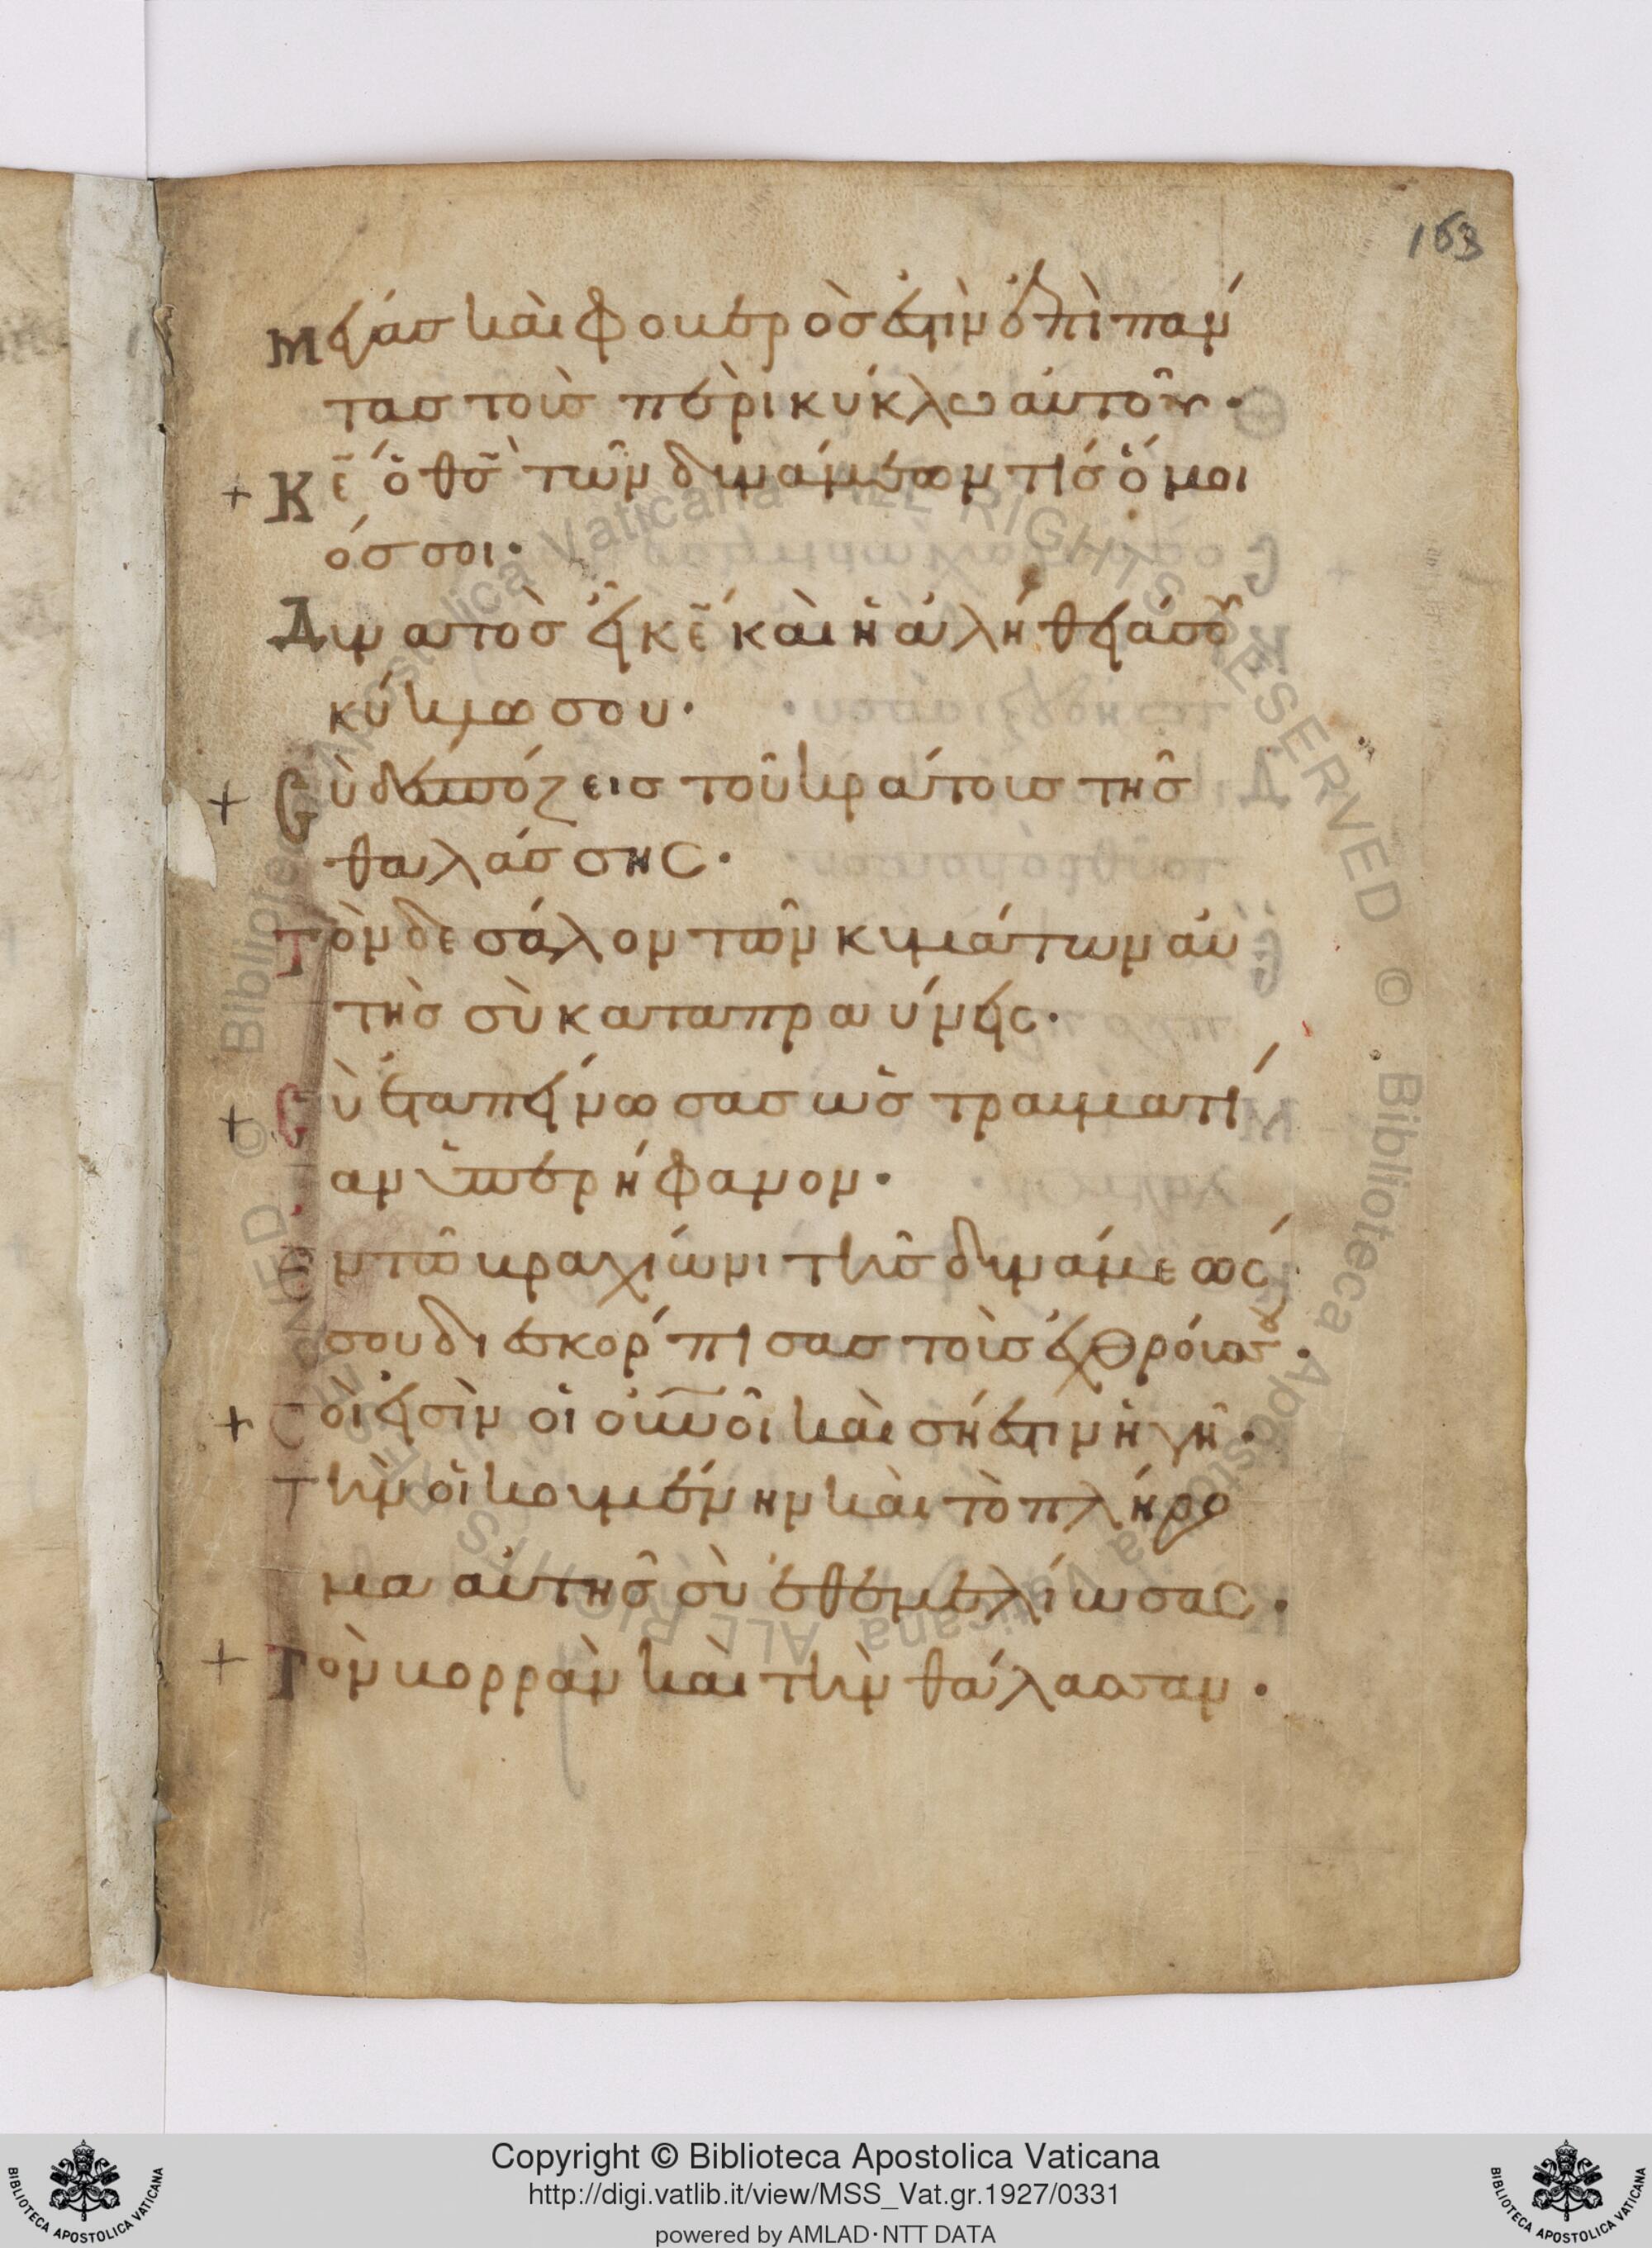 163
Μέγας καὶ φοβερὸς ἐστὶν ἐπὶ πάν
τας τοὺς περὶ κύκλω αὐτοῦ·
+ Κε̃ ὁ θσ̃ τῶν δυνάμεων τίς ὅμοι
ός σοι·
Δυνατὸς εἶ κε̃ καὶ ἡ ἀλήθειά σου
κύκλω σου·
+ Σὺ δεσπόζεις τοῦ κράτους τῆς
θαλάσσης·
Τὸν δὲ σάλον τῶν κυμάτων αὐ
τῆς σὺ καταπραΰνεις·
+ Σὺ ἐταπείνωσας ὡς τραυματί
αν ὑπερήφανον·
Ἐν τῶ βραχίωνι τῆς δυνάμεώς
σου διεσκόρπισας τοὺς ἐχθρούς σου·
+ Σοὶ εἰσὶν οἱ οὐνοὶ καὶ σή ἐστιν ἡ γῆ·
Τὴν οἰκουμένην καὶ τὸ πλήρο
μα αὐτῆς σὺ ἐθεμελίωσας·
+ Τὸν βορρὰν καὶ τὴν θάλασσαν·
Copyright © Biblioteca Apostolica Vaticana
http://digi.vatlib.it/view/MSS_Vat.gr.1927/0331
powered by AMLAD·NTT DATA
BIBLIOTECA APOSTOLICA VATICANA
BIBLIOTECA APOSTOLICA VATICANA